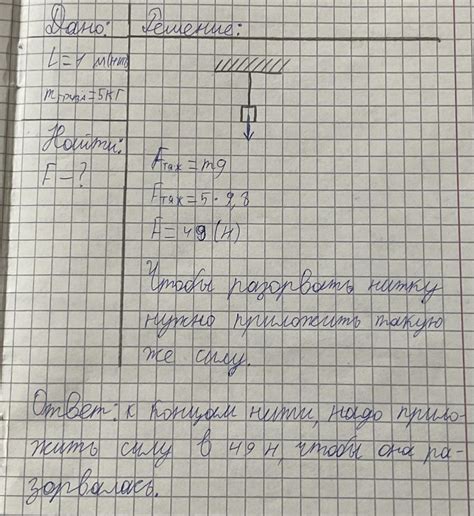 Дано:
Решение:
L=1 м(нит)
m груза=5кг
Найти:
F-?
Fтяж=mg
Fтяж=5·9,8
F=49(Н)
Чтобы разорвать нитку
нужно приложить такую
же силу.
Ответ: к концам нити, надо прило-
жить силу в 49Н, чтобы она ра-
зорвалась.